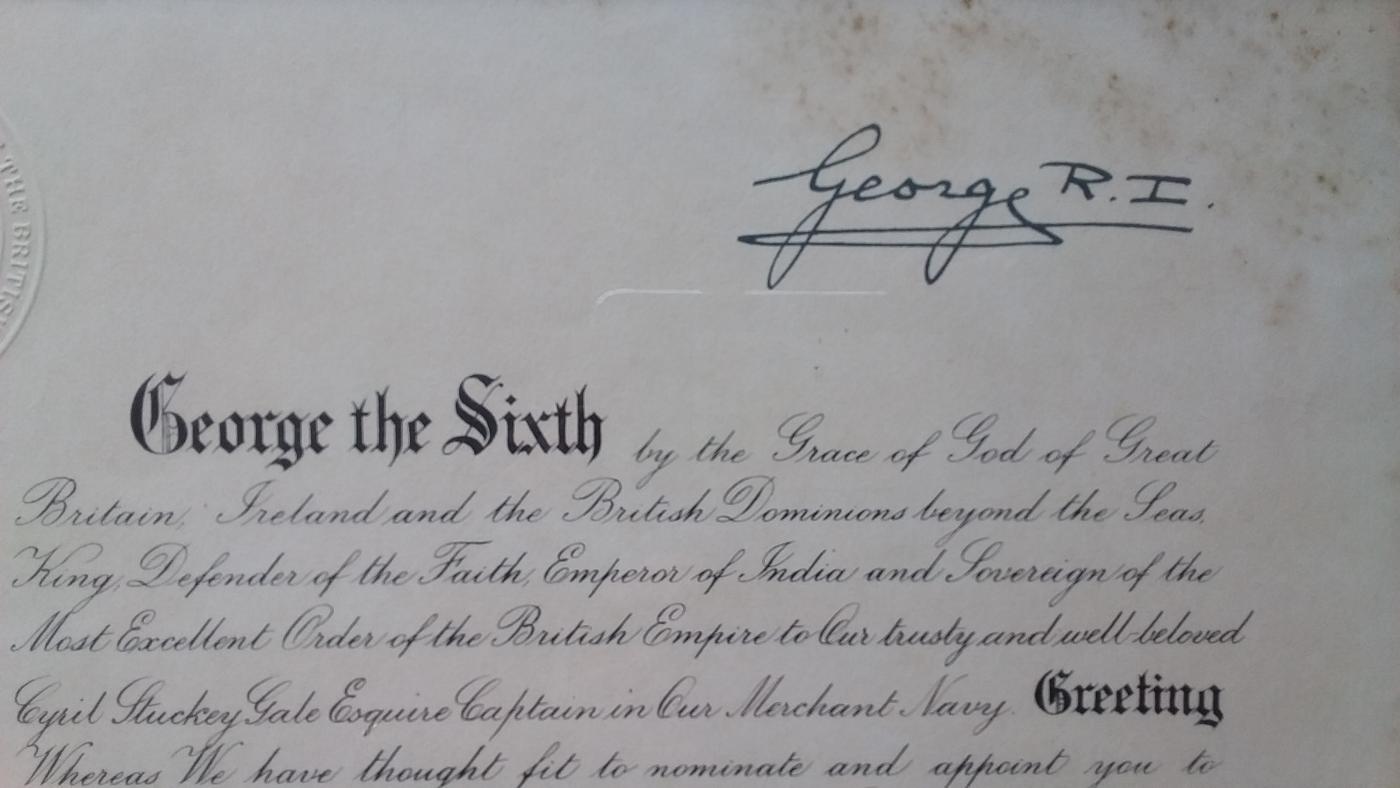 THE BRITISH
George R.I.
George the Sixth by the Grace of God of Great
Britain, Ireland and the British Dominions beyond the Seas,
King, Defender of the Faith, Emperor of India and Sovereign of the
Most Excellent Order of the British Empire to Our trusty and well-beloved
Cyril Stuckey Gale Esquire Captain in Our Merchant Navy. Greeting
Whereas We have thought fit to nominate and appoint you to